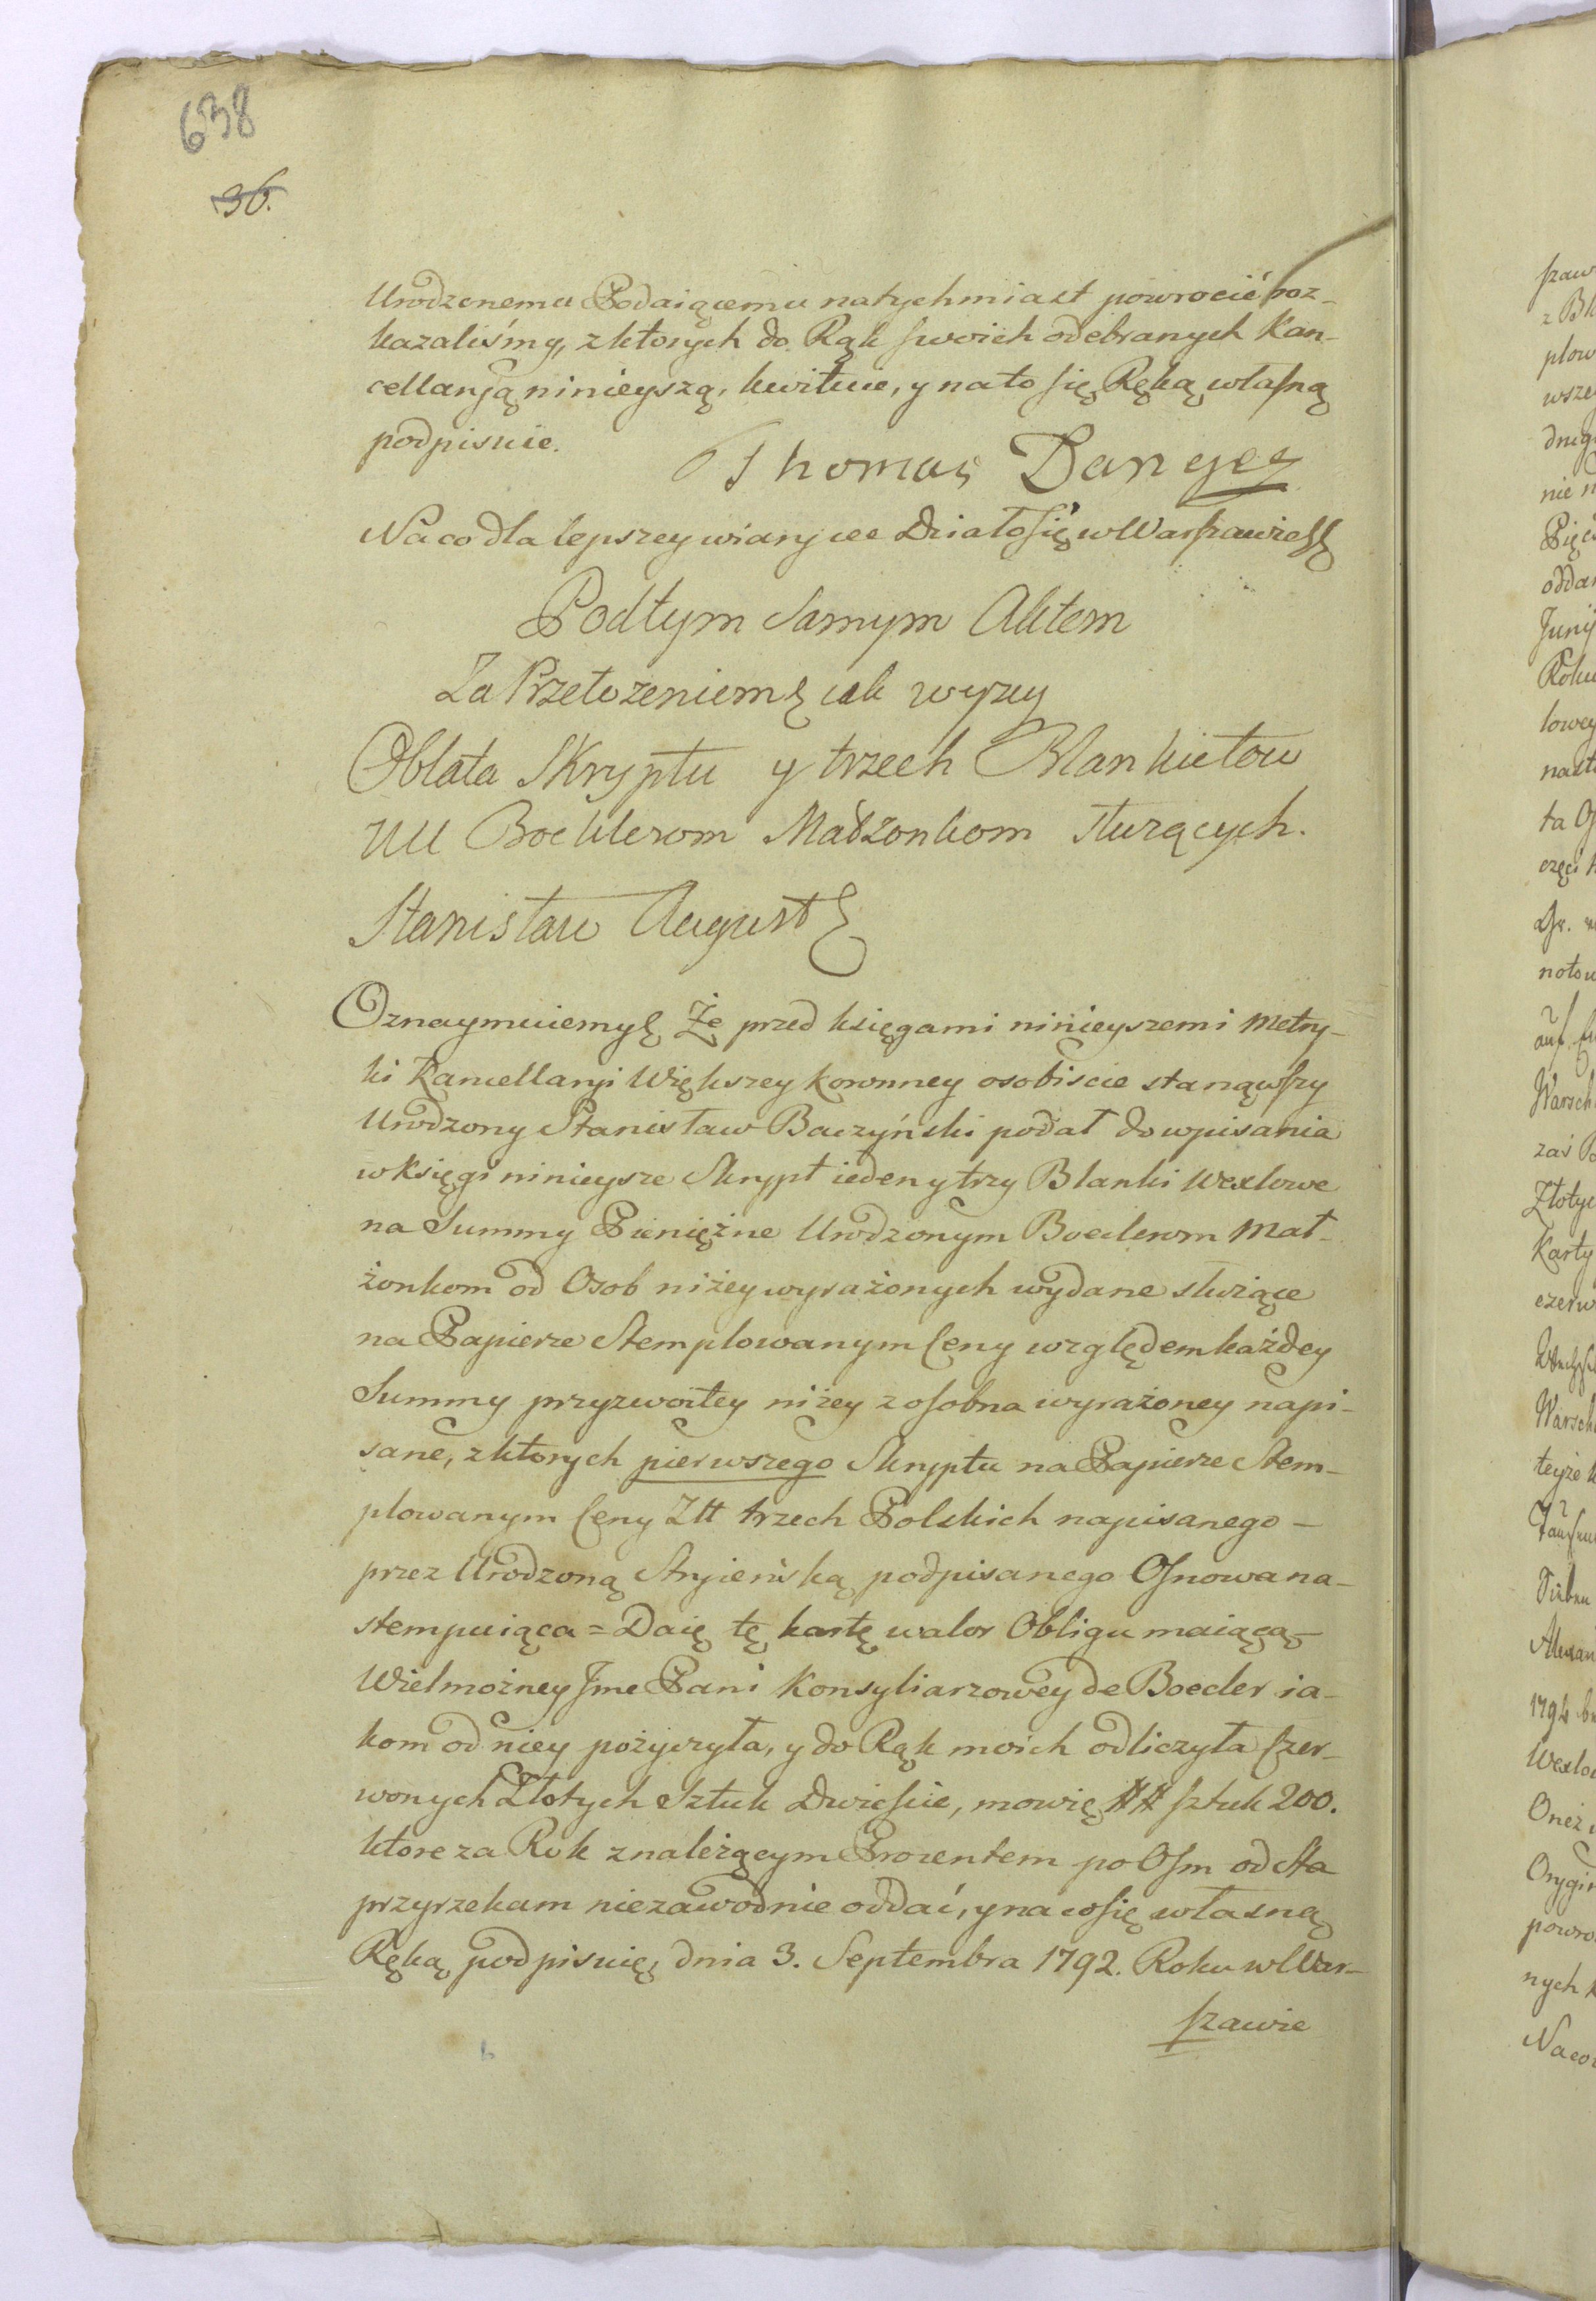 638
36.
Urodzonemu Podaiącemu natychmiast powrocić roz-
kazaliśmy, z ktorych do Rąk swoich odebranych Kan-
cellaryą ninieyszą, kwituie, y na to się Ręką własną
podpisuie.
Thomas Dangel
Na co dla lepszey wiary etc Działo się w Warszawie
Pod tym samym Aktem
Za Przełożeniem iak wyzey
Oblata Skryptu y trzech Blankietow
UU Boeklerom Małżonkom służących.
Stanisław August
Oznaymuiemy Że przed księgami ninieyszemi Metry-
ki Kancellaryi Większey Koronney osobiscie stanąwszy
Urodzony Stanisław Baczyński podał do wpisania
w księgi ninieysze Skrypt ieden y trzy Blanki Wexlowe
na Summy Pieniężne Urodzonym Boeclerom Mał-
żonkom od Osob niżey wyrażonych wydane służące
na Papierze Stemplowanym Ceny względem każdey
Summy przyzwoitey niżey z osobna wyrażoney napi-
sane, z ktorych pierwszego Skryptu na Papierze Stem-
plowanym Ceny Złł trzech Polskich napisanego -
przez Urodzoną Stryieńską podpisanego Osnowa na-
stempuiąca = Daię tę kartę walor Obligu maiącą -
Wielmożney Jme Pani Konsyliarzowey de Boecler ia-
kom od niey pożyczyła, y do Rąk moich odliczyła Czer-
wonych Złotych Sztuk Dwieście, mowię ## sztuk 200.
ktore za Rok z należącym Procentem po Osm od Sta
przyrzekam niezawodnie oddać, y na co się własną
Ręką podpisuię, dnia 3. Septembra 1792. Roku w War-
szawie